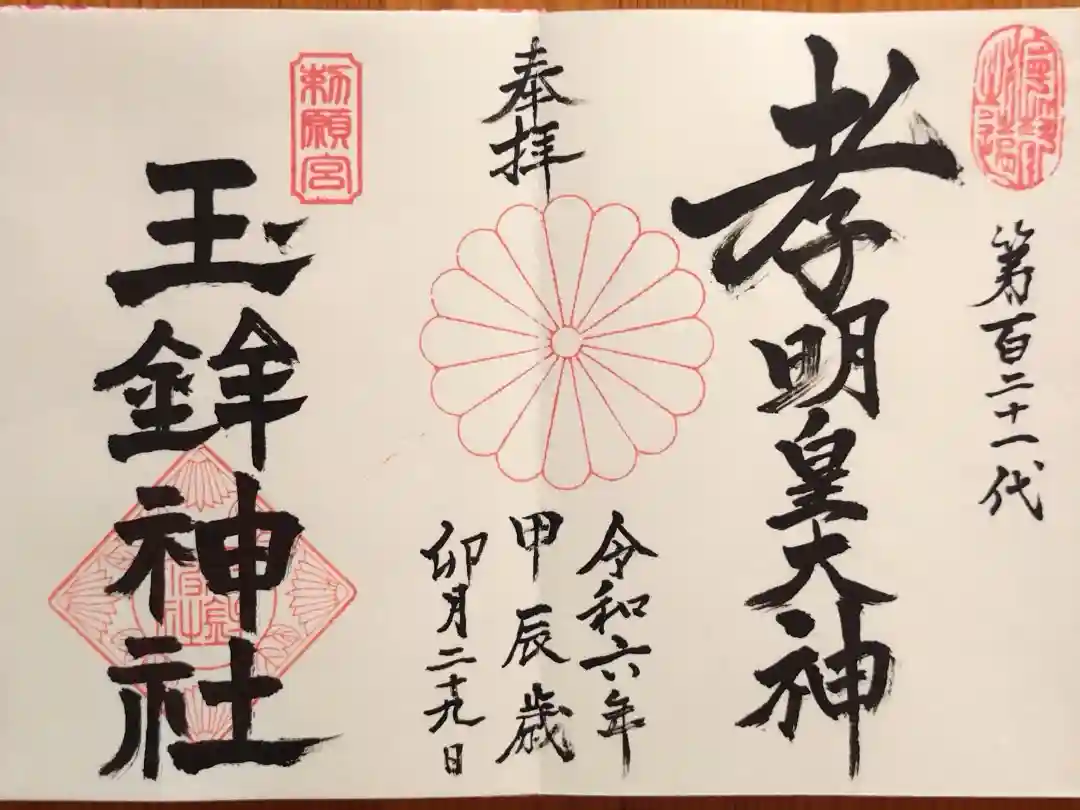 第百二十一代
孝明皇大神
奉拝
令和六年
甲辰歳
卯月二十九日
勅願宮
玉鉾神社